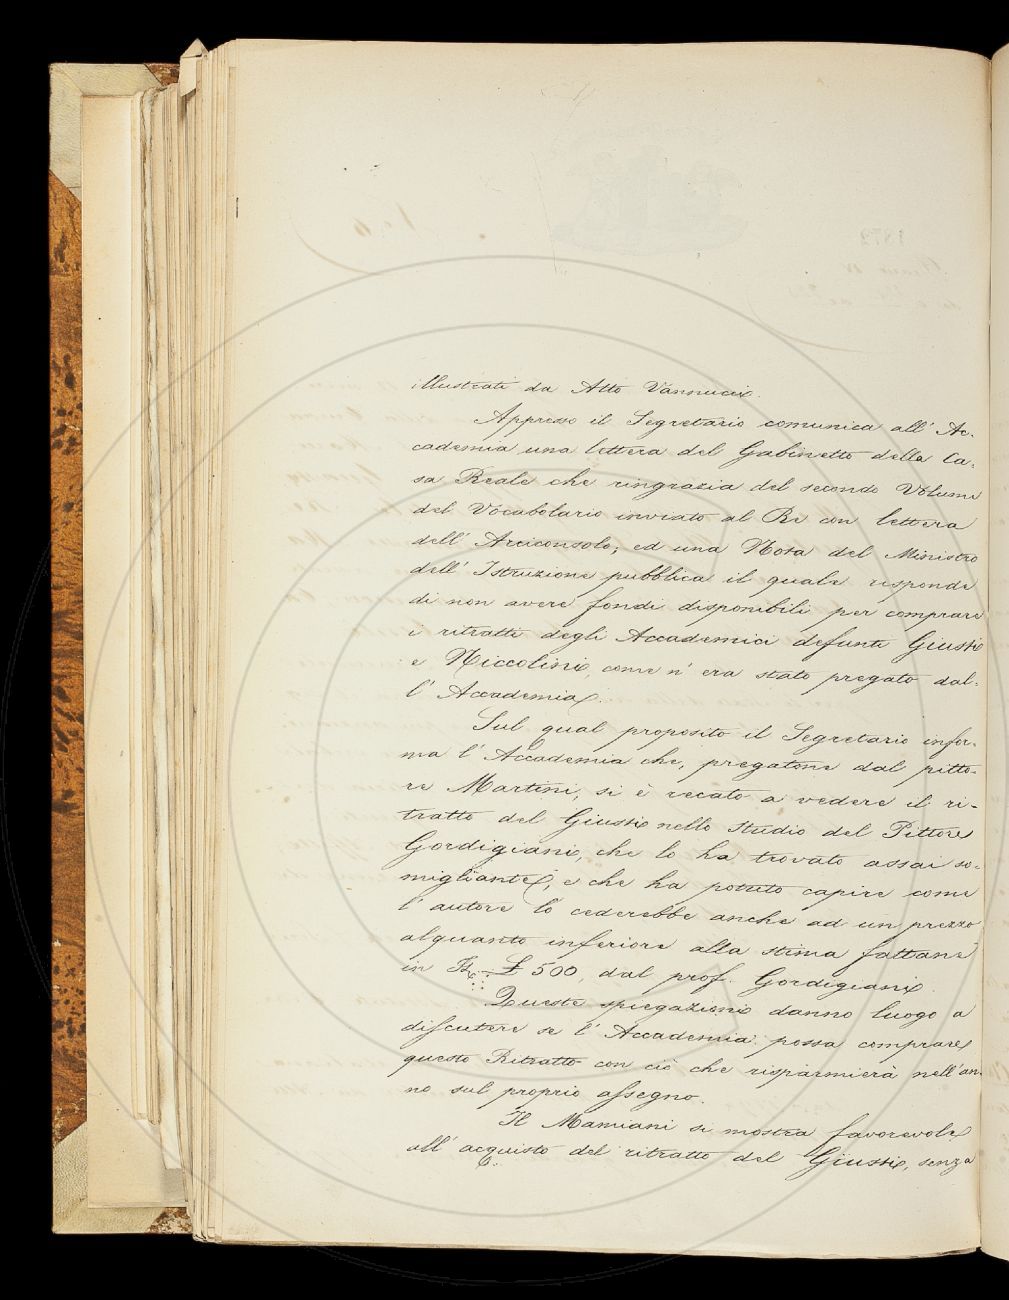 illustrati da Atto Vannucci.
Appresso il Segretario comunica all' Ac-
cademia una lettera del Gabinetto della Ca-
sa Reale che ringrazia del secondo Volume
del Vocabolario inviato al Re con lettera
dell' Arciconsolo; ed una Nota del Ministro
dell' Istruzione pubblica il quale risponde
di non avere fondi disponibili per comprare
i ritratti degli Accademici defunti Giusti
e Niccolini, come n' era stato pregato dal-
l' Accademia.
Sul qual proposito il Segretario infor-
ma l' Accademia che, pregatone dal pitto-
re Martini, si è recato a vedere il ri-
tratto del Giusti nello studio del Pittore
Gordigiani, che lo ha trovato assai so-
migliante, e che ha potuto capire come
l' autore lo cederebbe anche ad un prezzo
alquanto inferiore alla stima fattane
in £ 500, dal prof. Gordigiani.
Queste spiegazioni danno luogo a
discutere se l' Accademia possa comprare
questo Ritratto con ciò che risparmierà nell'an-
no sul proprio assegno.
Il Mamiani si mostra favorevole
all' acquisto del ritratto del Giusti, senza